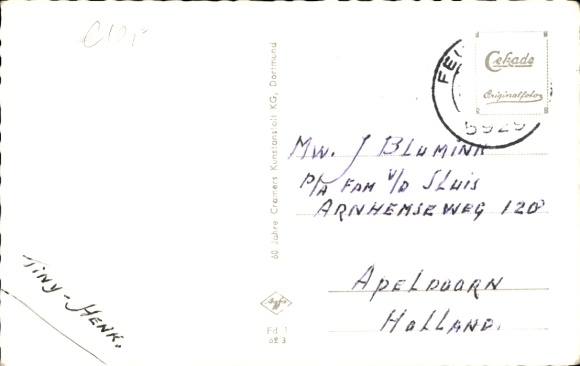 Cekade
Originalfoto
FEU
5929
Mw. J Blumink
p/a fam v/d Sluis
Arnhemseweg 120
Apeldoorn
Holland.
Tiny-Henk.
60 Jahre Cramers Kunstanstalt KG, Dortmund
Agfa
Fd 1
62 3